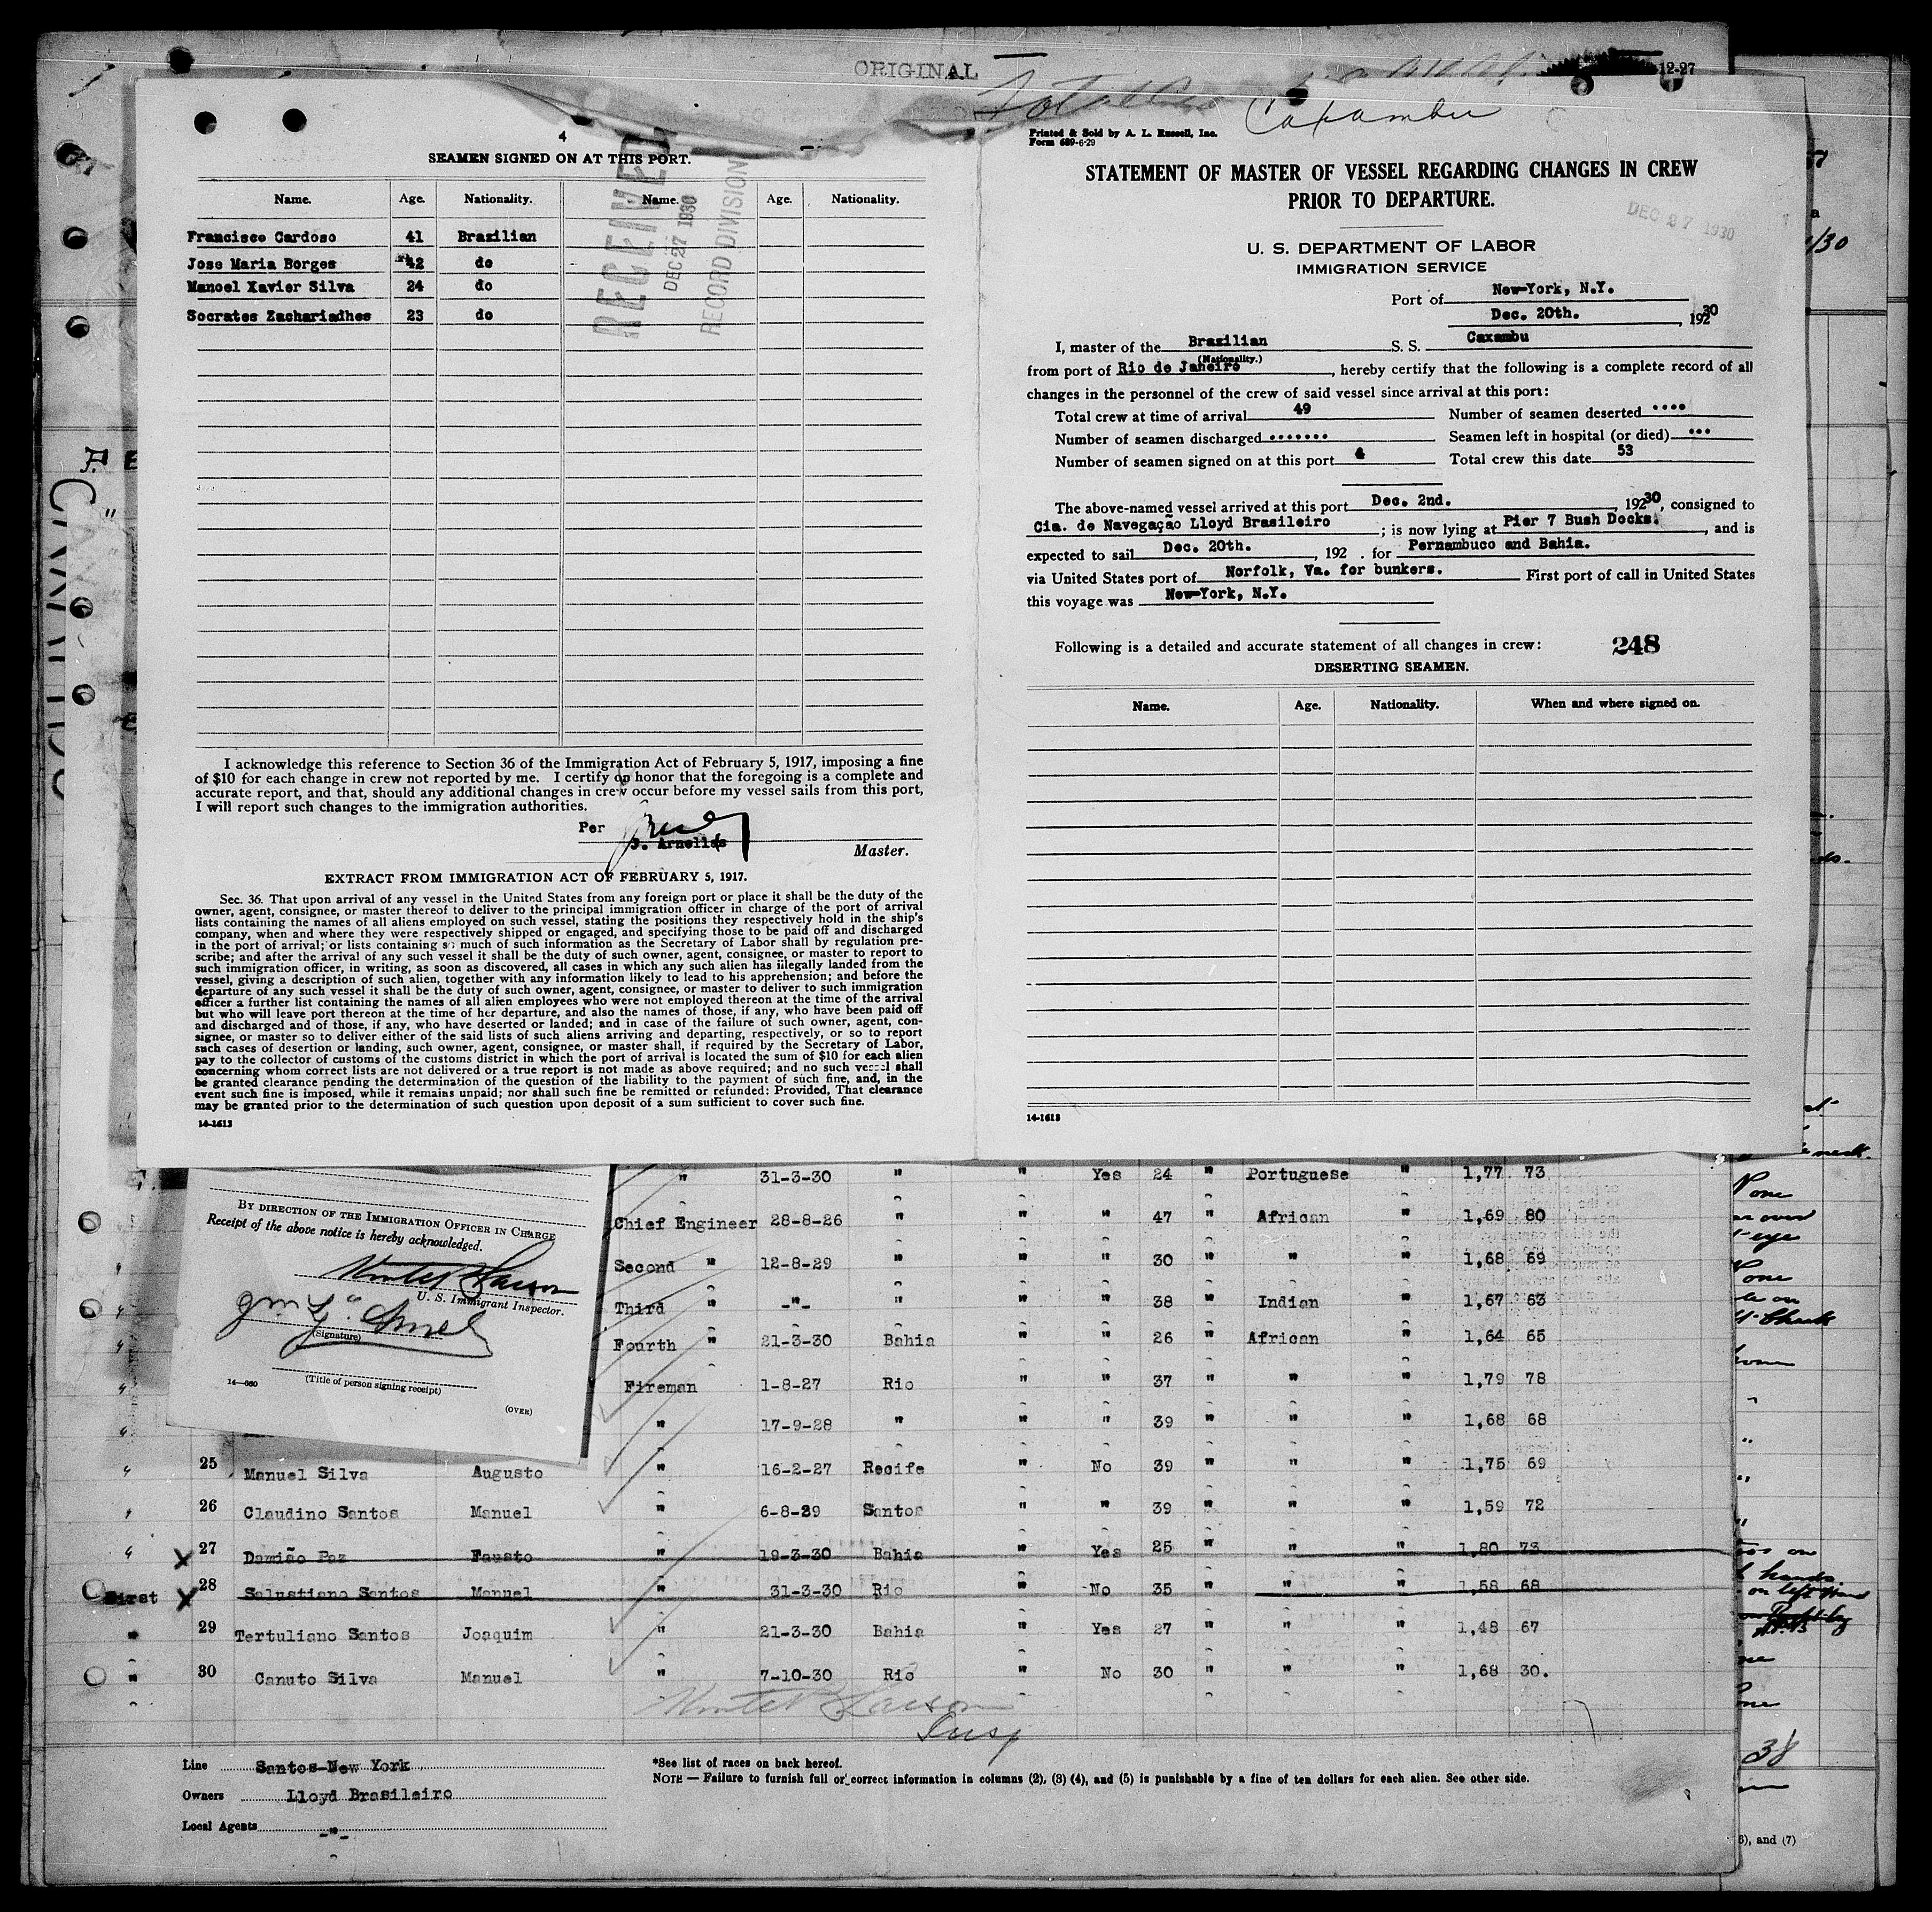 ORIGINAL
12-27
Caxambu
4
SEAMEN SIGNED ON AT THIS PORT.
Name. Age. Nationality. Name. Age. Nationality.
Francisco Cardoso 41 Brazilian
Jose Maria Borges 42 do
Manoel Xavier Silva 24 do
Socrates Zachariadhes 23 do
RECEIVED
DEC 27 1930
RECORD DIVISION
I acknowledge this reference to Section 36 of the Immigration Act of February 5, 1917, imposing a fine
of $10 for each change in crew not reported by me. I certify on honor that the foregoing is a complete and
accurate report, and that, should any additional changes in crew occur before my vessel sails from this port,
I will report such changes to the immigration authorities.
Per
Master.
EXTRACT FROM IMMIGRATION ACT OF FEBRUARY 5, 1917.
Sec. 36. That upon arrival of any vessel in the United States from any foreign port or place it shall be the duty of the
owner, agent, consignee, or master thereof to deliver to the principal immigration officer in charge of the port of arrival
lists containing the names of all aliens employed on such vessel, stating the positions they respectively hold in the ship's
company, when and where they were respectively shipped or engaged, and specifying those to be paid off and discharged
in the port of arrival; or lists containing so much of such information as the Secretary of Labor shall by regulation pre-
scribe; and after the arrival of any such vessel it shall be the duty of such owner, agent, consignee, or master to report to
such immigration officer, in writing, as soon as discovered, all cases in which any such alien has illegally landed from the
vessel, giving a description of such alien, together with any information likely to lead to his apprehension; and before the
departure of any such vessel it shall be the duty of such owner, agent, consignee, or master to deliver to such immigration
officer a further list containing the names of all alien employees who were not employed thereon at the time of the arrival
but who will leave port thereon at the time of her departure, and also the names of those, if any, who have been paid off
and discharged and of those, if any, who have deserted or landed; and in case of the failure of such owner, agent, con-
signee, or master so to deliver either of the said lists of such aliens arriving and departing, respectively, or so to report
such cases of desertion or landing, such owner, agent, consignee, or master shall, if required by the Secretary of Labor,
pay to the collector of customs of the customs district in which the port of arrival is located the sum of $10 for each alien
concerning whom correct lists are not delivered or a true report is not made as above required; and no such vessel shall
be granted clearance pending the determination of the question of the liability to the payment of such fine, and, in the
event such fine is imposed, while it remains unpaid; nor shall such fine be remitted or refunded: Provided, That clearance
may be granted prior to the determination of such question upon deposit of a sum sufficient to cover such fine.
14-1613
Printed & Sold by A. L. Russell, Inc.
Form 689-6-29
STATEMENT OF MASTER OF VESSEL REGARDING CHANGES IN CREW
PRIOR TO DEPARTURE.
DEC 27 1930
U. S. DEPARTMENT OF LABOR
IMMIGRATION SERVICE
Port of New-York, N.Y.
Dec. 20th. , 19230
I, master of the Brazilian S. S. Caxambu
(Nationality.)
from port of Rio de Janeiro , hereby certify that the following is a complete record of all
changes in the personnel of the crew of said vessel since arrival at this port:
Total crew at time of arrival 49 Number of seamen deserted ....
Number of seamen discharged ....... Seamen left in hospital (or died) ...
Number of seamen signed on at this port 4 Total crew this date 53
The above-named vessel arrived at this port Dec. 2nd. , 19230, consigned to
Cia. de Navegação Lloyd Brasileiro ; is now lying at Pier 7 Bush Docks. , and is
expected to sail Dec. 20th. , 192 . for Pernambuco and Bahia.
via United States port of Norfolk, Va. for bunkers. First port of call in United States
this voyage was New-York, N.Y.
Following is a detailed and accurate statement of all changes in crew: 248
DESERTING SEAMEN.
Name. Age. Nationality. When and where signed on.
14-1613
By direction of the Immigration Officer in Charge
Receipt of the above notice is hereby acknowledged.
U. S. Immigrant Inspector.
(Signature)
(Title of person signing receipt)
14—660
(OVER)
" 31-3-30 " " Yes 24 " Portuguese " 1,77 73
Chief Engineer 28-8-26 " " " 47 " African " 1,69 80
Second " 12-8-29 " " " 30 " " " 1,68 69
Third " -"- " " " 38 " Indian " 1,67 63
Fourth " 21-3-30 Bahia " " 26 " African " 1,64 65
Fireman 1-8-27 Rio " " 37 " " " 1,79 78
" 17-9-28 " " " 39 " " " 1,68 68
25 Manuel Silva Augusto " 16-2-27 Recife " No 39 " " " 1,75 69
26 Claudino Santos Manuel " 6-8-29 Santos " " 39 " " " 1,59 72
27 Damião Paz Fausto " 19-3-30 Bahia " Yes 25 " " " 1,80 73
First 28 Salustiano Santos Manuel " 31-3-30 Rio " No 35 " " " 1,58 68
" 29 Tertuliano Santos Joaquim " 21-3-30 Bahia " Yes 27 " " " 1,48 67
" 30 Canuto Silva Manuel " 7-10-30 Rio " No 30 " " " 1,68 30.
Insp
Line Santos-New York
Owners Lloyd Brasileiro
Local Agents -"-
*See list of races on back hereof.
NOTE — Failure to furnish full or correct information in columns (2), (3) (4), and (5) is punishable by a fine of ten dollars for each alien. See other side.
38
6), and (7)